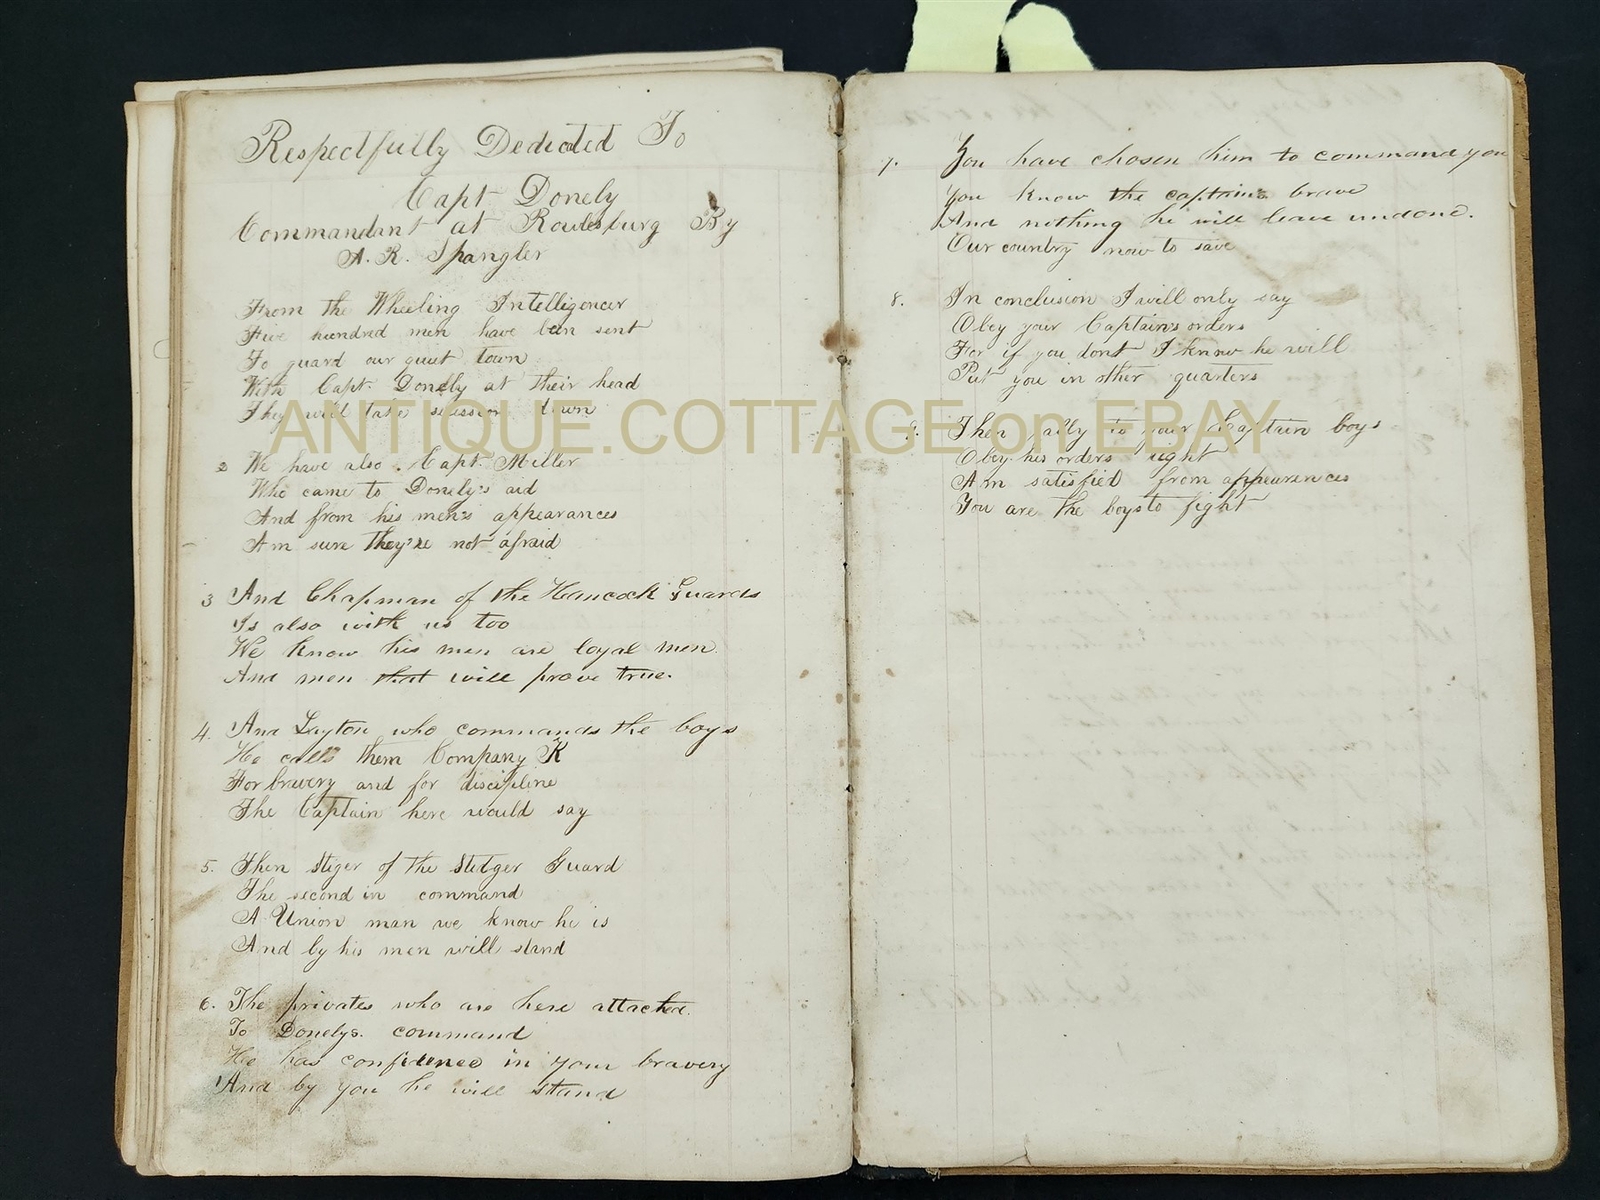 Respectfully Dedicated To
Capt Donely
Commandant at Rowlesburg By
A. R. Spangler
From the Wheeling Intelligencer
Five hundred men have been sent
To guard our quiet town
With Capt. Donelly at their head
They will take secession down
2 We have also Capt. Miller
Who came to Donely's aid
And from his men's appearances
Am sure they're not afraid
3 And Chapman of the Hancock Guards
Is also with us too
We know his men are loyal men
And men that will prove true.
4. And Layton who commands the boys
He calls them Company K
For bravery and for discipline
The Captain here would say
5. Then Stiger of the Stetger Guard
The second in command
A Union man we know he is
And by his men will stand
6. The privates who are here attached
To Donelys. command
He has confidence in your bravery
And by you he will stand
7. You have chosen him to command you
You know the captains brave
And nothing he will leave undone.
Our country now to save
8. In conclusion I will only say
Obey your Captain's orders
For if you dont I know he will
Put you in other quarters
9. Then rally to your Captain boys
Obey his orders right
Am satisfied from appearences
You are the boys to fight
ANTIQUE.COTTAGE on EBAY